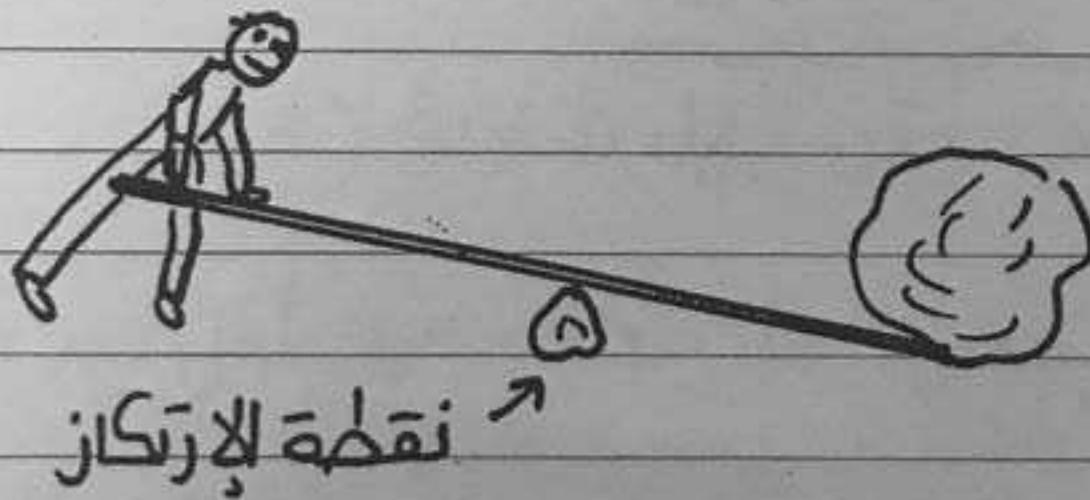 نقطة الإرتكاز